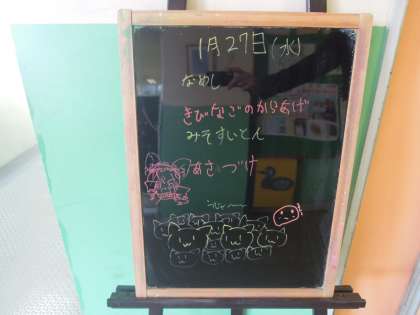 1月27日(水)
なめし
きびなごのからあげ
みそすいとん
あさづけ